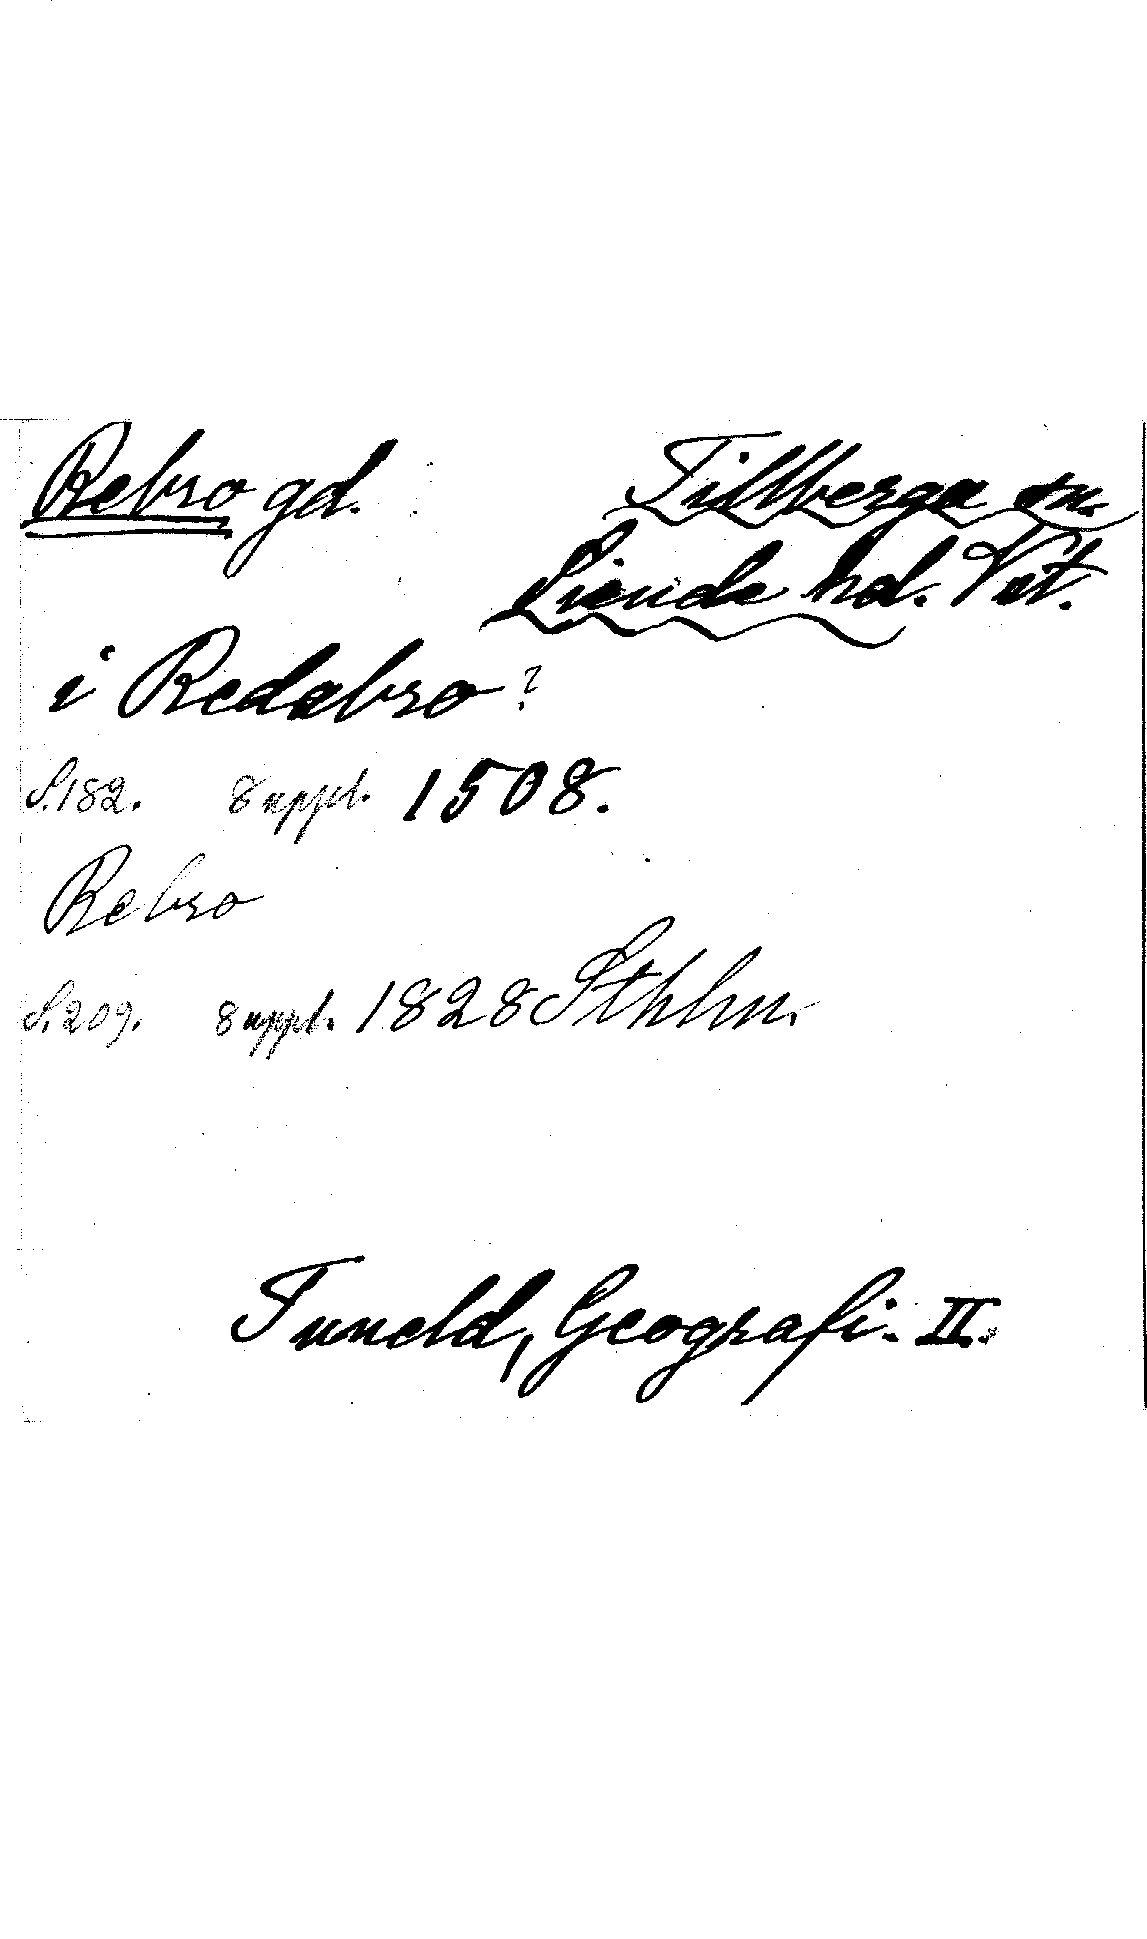 Rebro gd.
Tillberga sn.
Siende hd. Vst.
i Redabro ?
S. 182. 8 uppl. 1508.
Rebro
S. 209. 8 uppl. 1828 Sthlm.
Tuneld, Geografi. II.